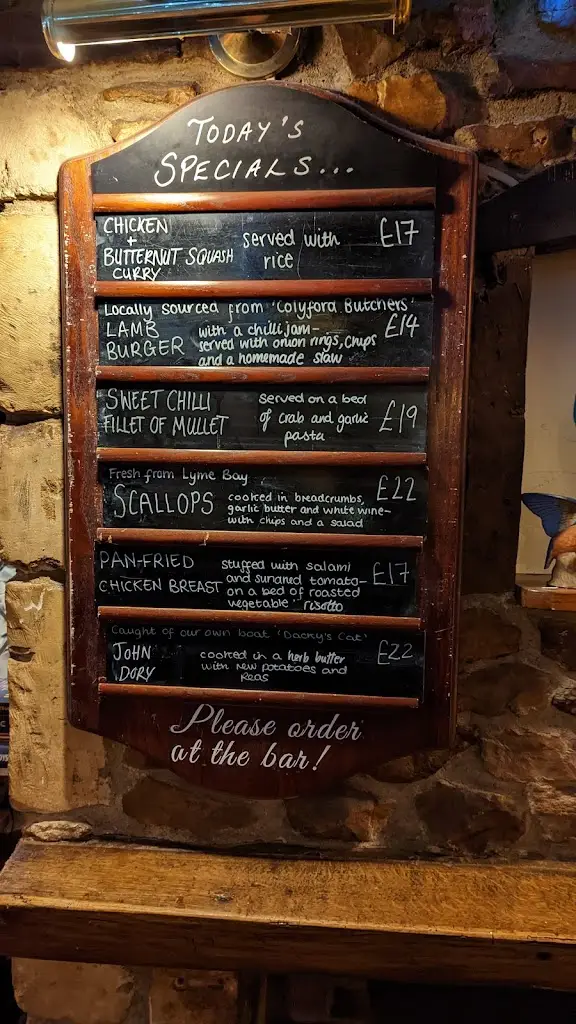 TODAY'S
SPECIALS...
CHICKEN
+
BUTTERNUT SQUASH
CURRY
served with
rice
£17
Locally sourced from 'Colyford Butchers'
LAMB
BURGER
with a chilli jam-
served with onion rings, chips
and a homemade slaw
£14
SWEET CHILLI
FILLET OF MULLET
served on a bed
of crab and garlic
pasta
£19
Fresh from Lyme Bay
SCALLOPS
cooked in breadcrumbs,
garlic butter and white wine-
with chips and a salad
£22
PAN-FRIED
CHICKEN BREAST
stuffed with salami
and sundried tomato-
on a bed of roasted
vegetable risotto
£17
Caught of our own boat 'Dacky's Cat'
JOHN
DORY
cooked in a herb butter
with new potatoes and
peas
£22
Please order
at the bar!